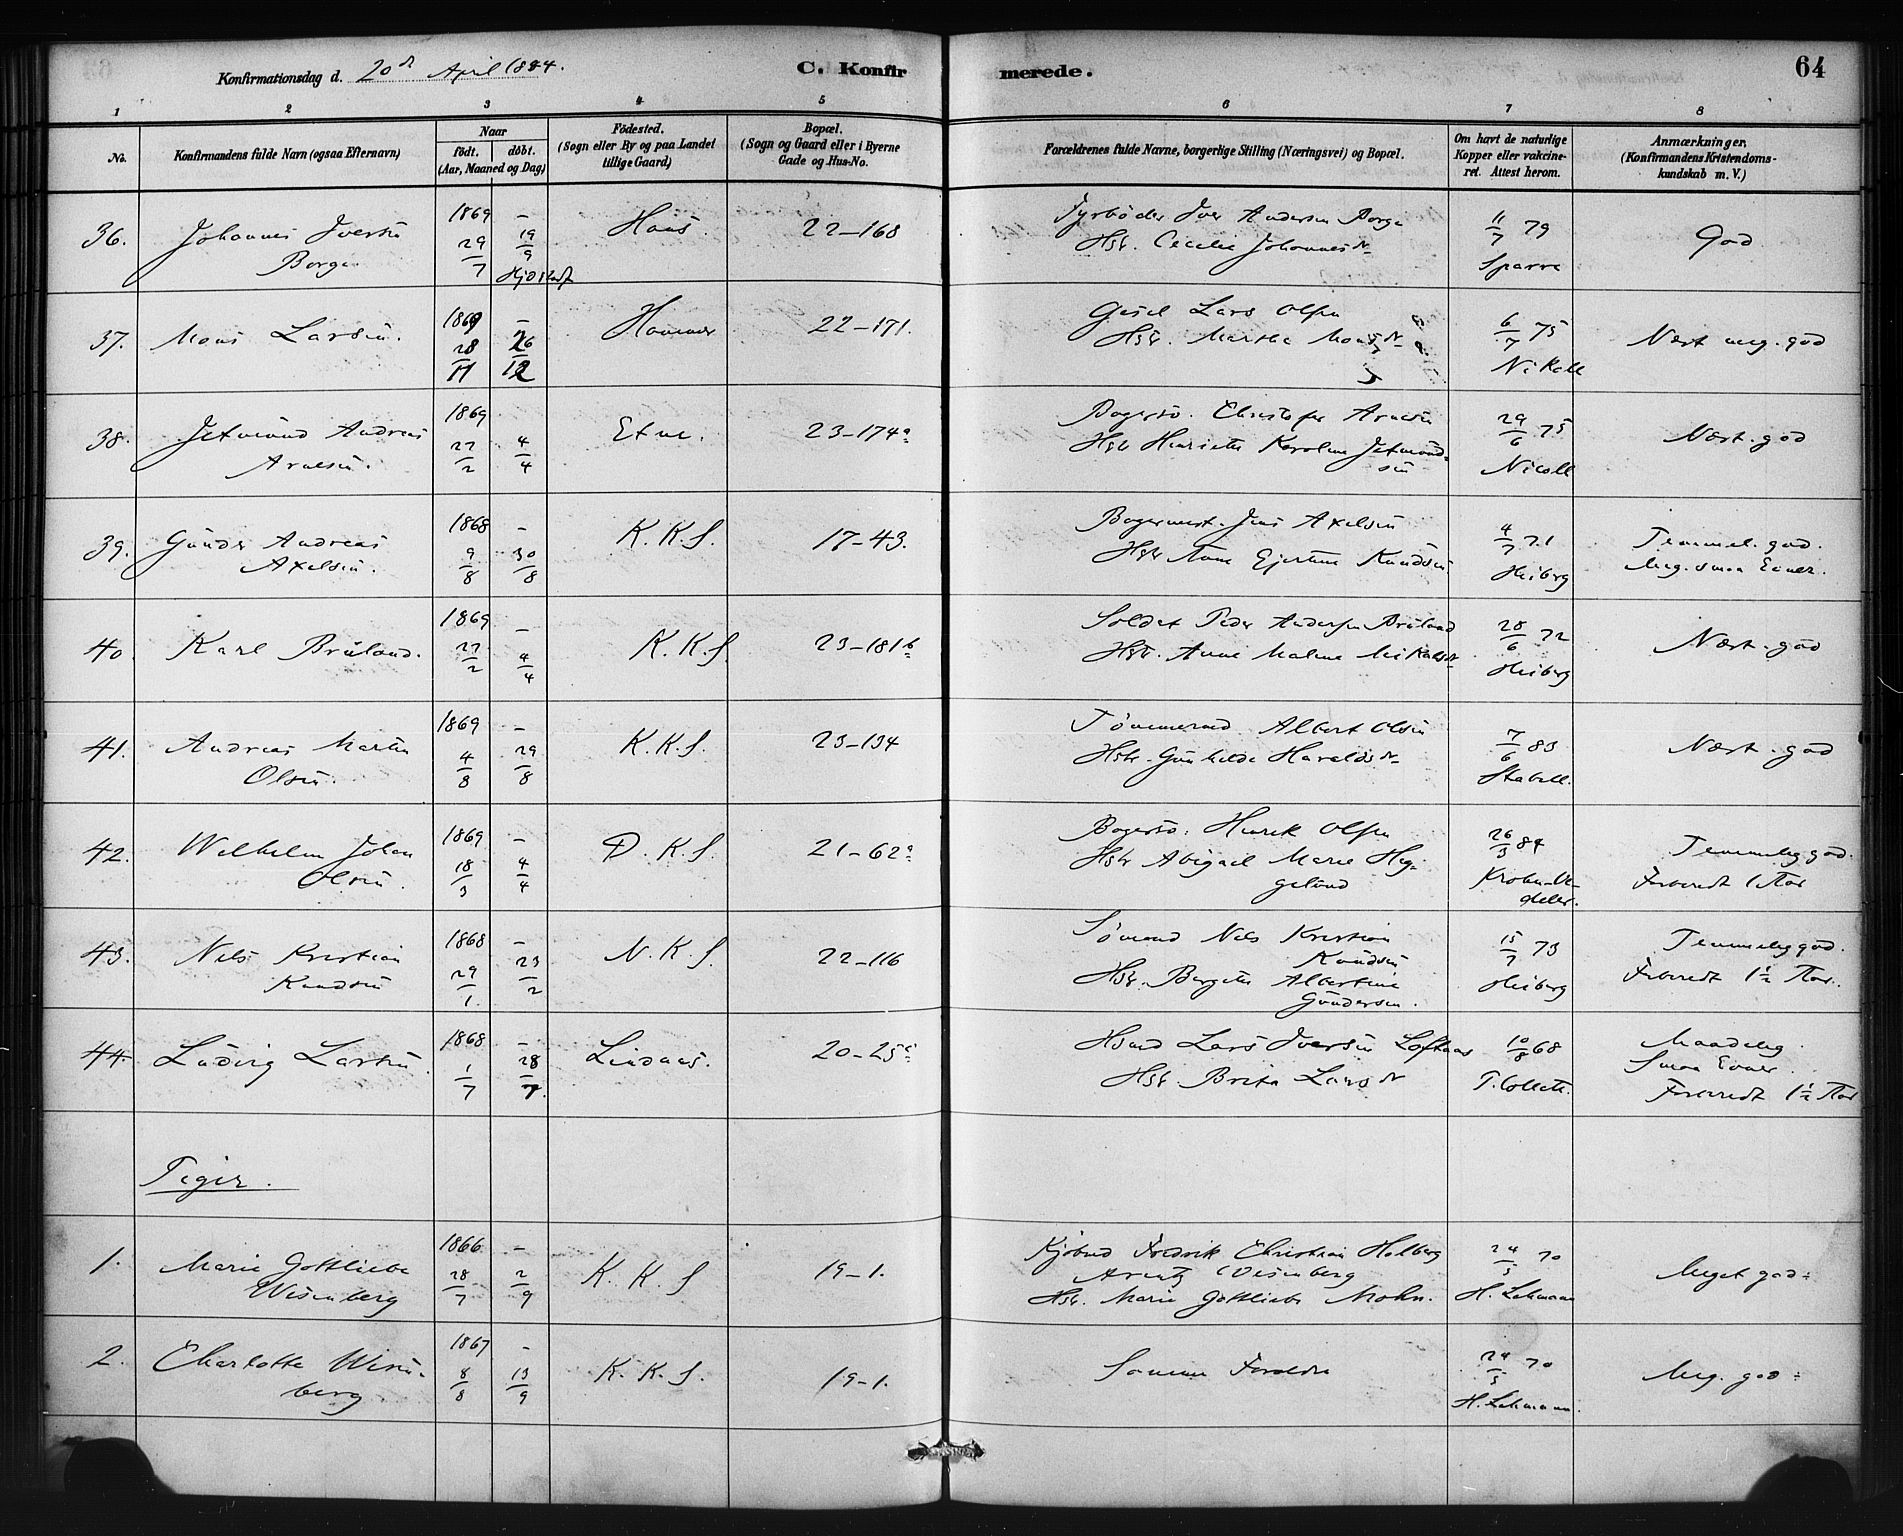 Konfirmationsdag d. 20de April 1884.
C. Konfirmerede.
64
1 2 3 4 5 6 7 8
No.
Konfirmandens fulde Navn (ogsaa Efternavn)
Naar
født. døbt.
(Aar, Maaned og Dag)
Födested.
(Sogn eller By og paa Landet
tillige Gaard)
Bopæl.
(Sogn og Gaard eller i Byerne
Gade og Hus-No.
Forældrenes fulde Navne, borgerlige Stilling (Næringsvei) og Bopæl.
Om havt de naturlige
Kopper eller vakcine-
ret. Attest herom.
Anmærkninger,
(Konfirmandens Kristendoms-
kundskab m. V.)
36. Johannes Iversen
Borge
1869 29/7
- 19/9
Haus.
22-168
Fyrbøder Iver Andersen Borge
Hstr. Cecilie Johannesdr
11/7 79
Sparre
God
37. Mons Larsen.
1869 28/11
- 26/12
Hammer
22-171.
Gjesel Lars Olsen
Hstr. Martha Monsdr
6/7 75
Nikoll
Næst meg. god
38. Jetmund Andreas
Arnesen.
1869 27/2
4/4
Etne.
23-174a
Bogersv. Christofer Arnesen
Hstr Henriette Karoline Jetmund-
sen
29/6 75
Nicoll
Næst. god
39. Gunder Andreas
Axelsen.
1868 9/8
- 30/8
K. K. S.
17-43.
Bogermest. Jens Axelsen
Hstr Anne Gjertine Knudsen.
4/7 71
Heiberg
Temmel. god.
Meg. smaa Evner.
40. Karl Bruland.
1869 27/2
- 4/4
K. K. S.
23-181b
Soldat Peder Andersen Bruland
Hstr. Anne Malene Mikalsdr
28/6 72
Heiberg
Næst. god
41. Andreas Martin
Olsen.
1869 4/8
- 29/8
K. K. S.
23-134
Tømmermd Albert Olsen
Hstr. Gunhilde Haraldsdr
7/6 83
Stabell.
Næst. god
42. Wilhelm Johan
Olsen.
1869 18/3
- 4/4
D. K. S.
21-62a
Bogersv. Henrik Olsen
Hstr Abigael Marie Heg-
gelund
26/3 84
Temmelig god.
Forberedt 1 Aar
43. Nils Kristian
Knudsen
1868 29/1.
- 23/2
N. K. S.
22-116
Sømand Nils Kristian
Knudsen
Hstr. Bergitte Albertine
Gundersen.
15/7 73
Heiberg
Temmelig god.
Forberedt 1½ Aar.
44. Ludvig Larsen.
1868 1/7
- 28/7.
Lindaas.
20-25c
Hsmd Lars Iversen Loftaas
Hstr. Brita Larsdr
10/8 68
T. Collett.
Maadelig.
Smaa Evner.
Forberedt 1½ Aar
Piger.
1. Marie Gottliebe
Wesenberg
1866 28/7
- 2/9
K. K. S
19-1.
Kjøbmd Fredrik Christian Holberg
Arentz Wesenberg
Hstr. Marie Gottliebe Mohn.
24/5 70
H. Lehmann
Meget god.
2. Charlotte Wesen-
berg
1867 8/8
- 13/9
K. K. S.
19-1.
Samme Foreldre
24/5 70
H. Lehmann.
Meg. god.